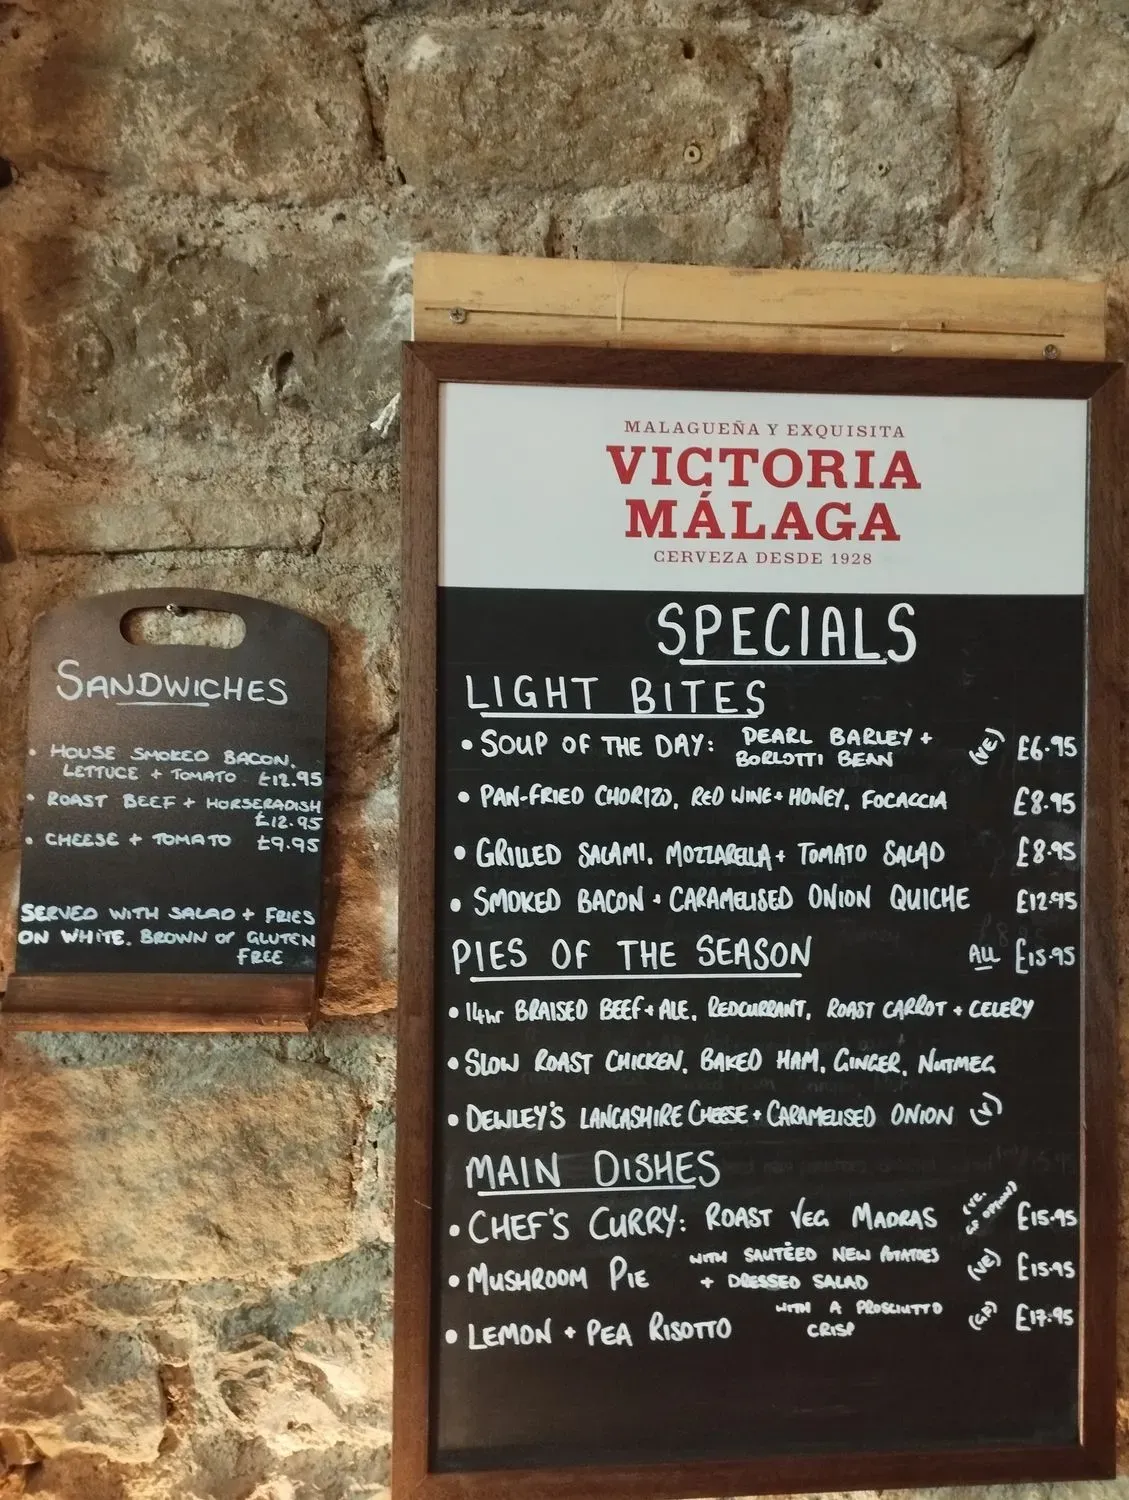 SANDWICHES
• HOUSE SMOKED BACON,
LETTUCE + TOMATO £12.95
• ROAST BEEF + HORSERADISH
£12.95
• CHEESE + TOMATO £9.95
SERVED WITH SALAD + FRIES
ON WHITE, BROWN or GLUTEN
FREE
MALAGUEÑA Y EXQUISITA
VICTORIA
MÁLAGA
CERVEZA DESDE 1928
SPECIALS
LIGHT BITES
• SOUP OF THE DAY: PEARL BARLEY + BORLOTTI BEAN (VE) £6.95
• PAN-FRIED CHORIZO, RED WINE + HONEY, FOCACCIA £8.95
• GRILLED SALAMI, MOZZARELLA + TOMATO SALAD £8.95
• SMOKED BACON + CARAMELISED ONION QUICHE £12.95
PIES OF THE SEASON ALL £15.95
• 14hr BRAISED BEEF + ALE, REDCURRANT, ROAST CARROT + CELERY
• SLOW ROAST CHICKEN, BAKED HAM, GINGER, NUTMEG
• DEWLEY'S LANCASHIRE CHEESE + CARAMELISED ONION (V)
MAIN DISHES
• CHEF'S CURRY: ROAST VEG MADRAS (VE, GF OPTION) £15.95
• MUSHROOM PIE WITH SAUTÉED NEW POTATOES + DRESSED SALAD (VE) £15.95
• LEMON + PEA RISOTTO WITH A PROSCIUTTO CRISP (GF) £17.95